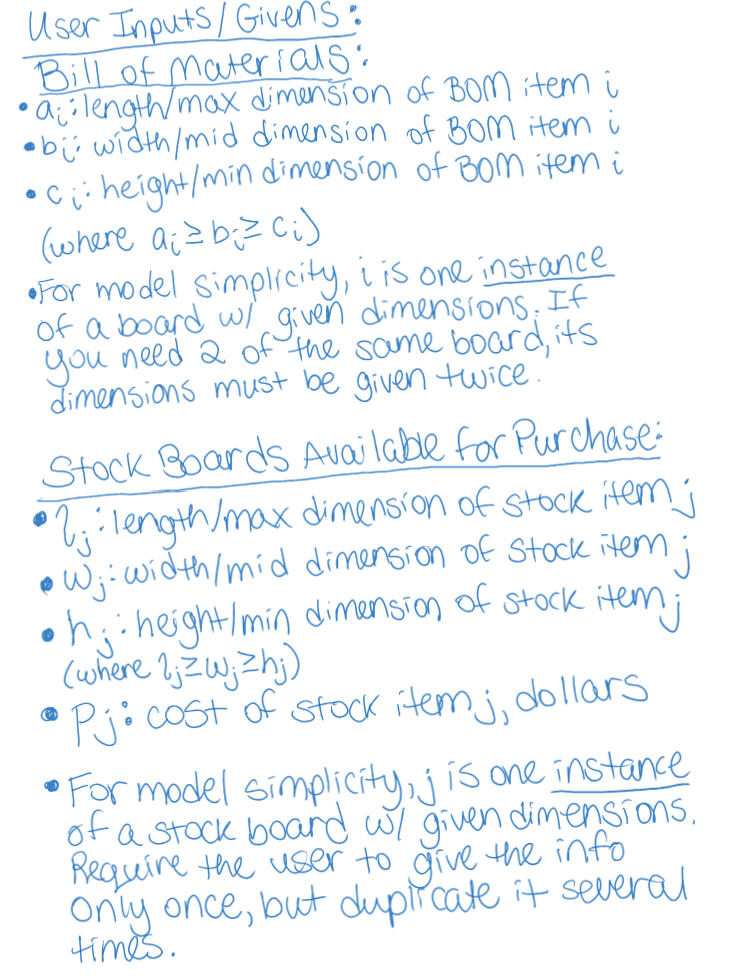 User Inputs/Givens:
Bill of Materials:
• aᵢ: length/max dimension of BOM item i
• bᵢ: width/mid dimension of BOM item i
• cᵢ: height/min dimension of BOM item i
(where aᵢ ≥ bᵢ ≥ cᵢ)
• For model simplicity, i is one instance
of a board w/ given dimensions. If
you need 2 of the same board, its
dimensions must be given twice.
Stock Boards Available for Purchase:
• lⱼ: length/max dimension of stock item j
• wⱼ: width/mid dimension of stock item j
• hⱼ: height/min dimension of stock item j
(where lⱼ ≥ wⱼ ≥ hⱼ)
• Pⱼ: cost of stock item j, dollars
• For model simplicity, j is one instance
of a stock board w/ given dimensions.
Require the user to give the info
only once, but duplicate it several
times.